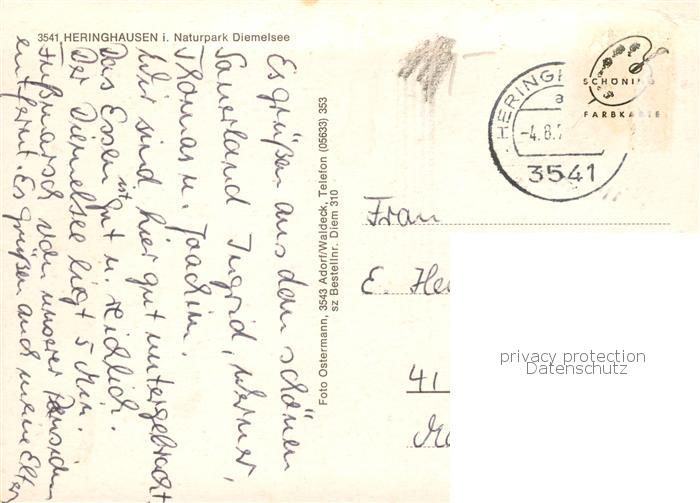 3541 HERINGHAUSEN i. Naturpark Diemelsee
Es grüßen aus dem schönen
Sauerland Ingrid, Werner,
Thomas u. Joachim.
Wir sind hier gut untergebracht
Das Essen ist gut u. reichlich.
Der Diemelsee liegt 5 Min.
Fußmarsch von unserer Pension
entfernt. Es grüßen auch meine Elter
Foto Ostermann, 3543 Adorf/Waldeck, Telefon (05633) 353
sz Bestellnr. Diem 310
HERINGH
a
-4.8.7
3541
SCHÖNING
FARBKARTE
Frau
E. He
41
privacy protection
Datenschutz